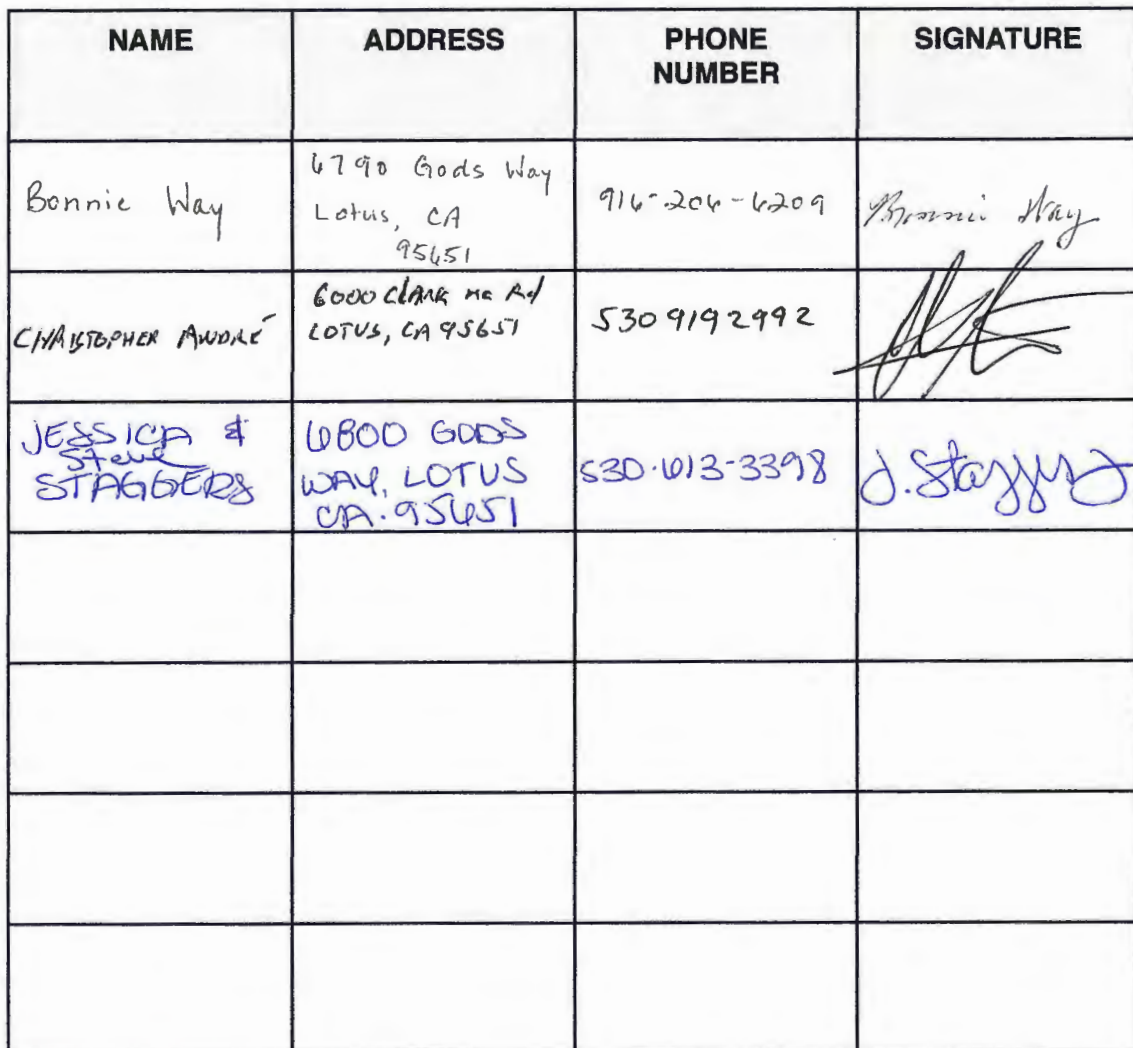 NAME
ADDRESS
PHONE
NUMBER
SIGNATURE
Bonnie Way
6790 Gods Way
Lotus, CA
95651
916-206-6209
Bonnie Way
CHRISTOPHER ANDRÉ
6000 CLARK Rd
LOTUS, CA 95651
530 919 2992
JESSICA &
Steve
STAGGERS
6800 GODS
WAY, LOTUS
CA. 95651
530-613-3398
J. Staggers